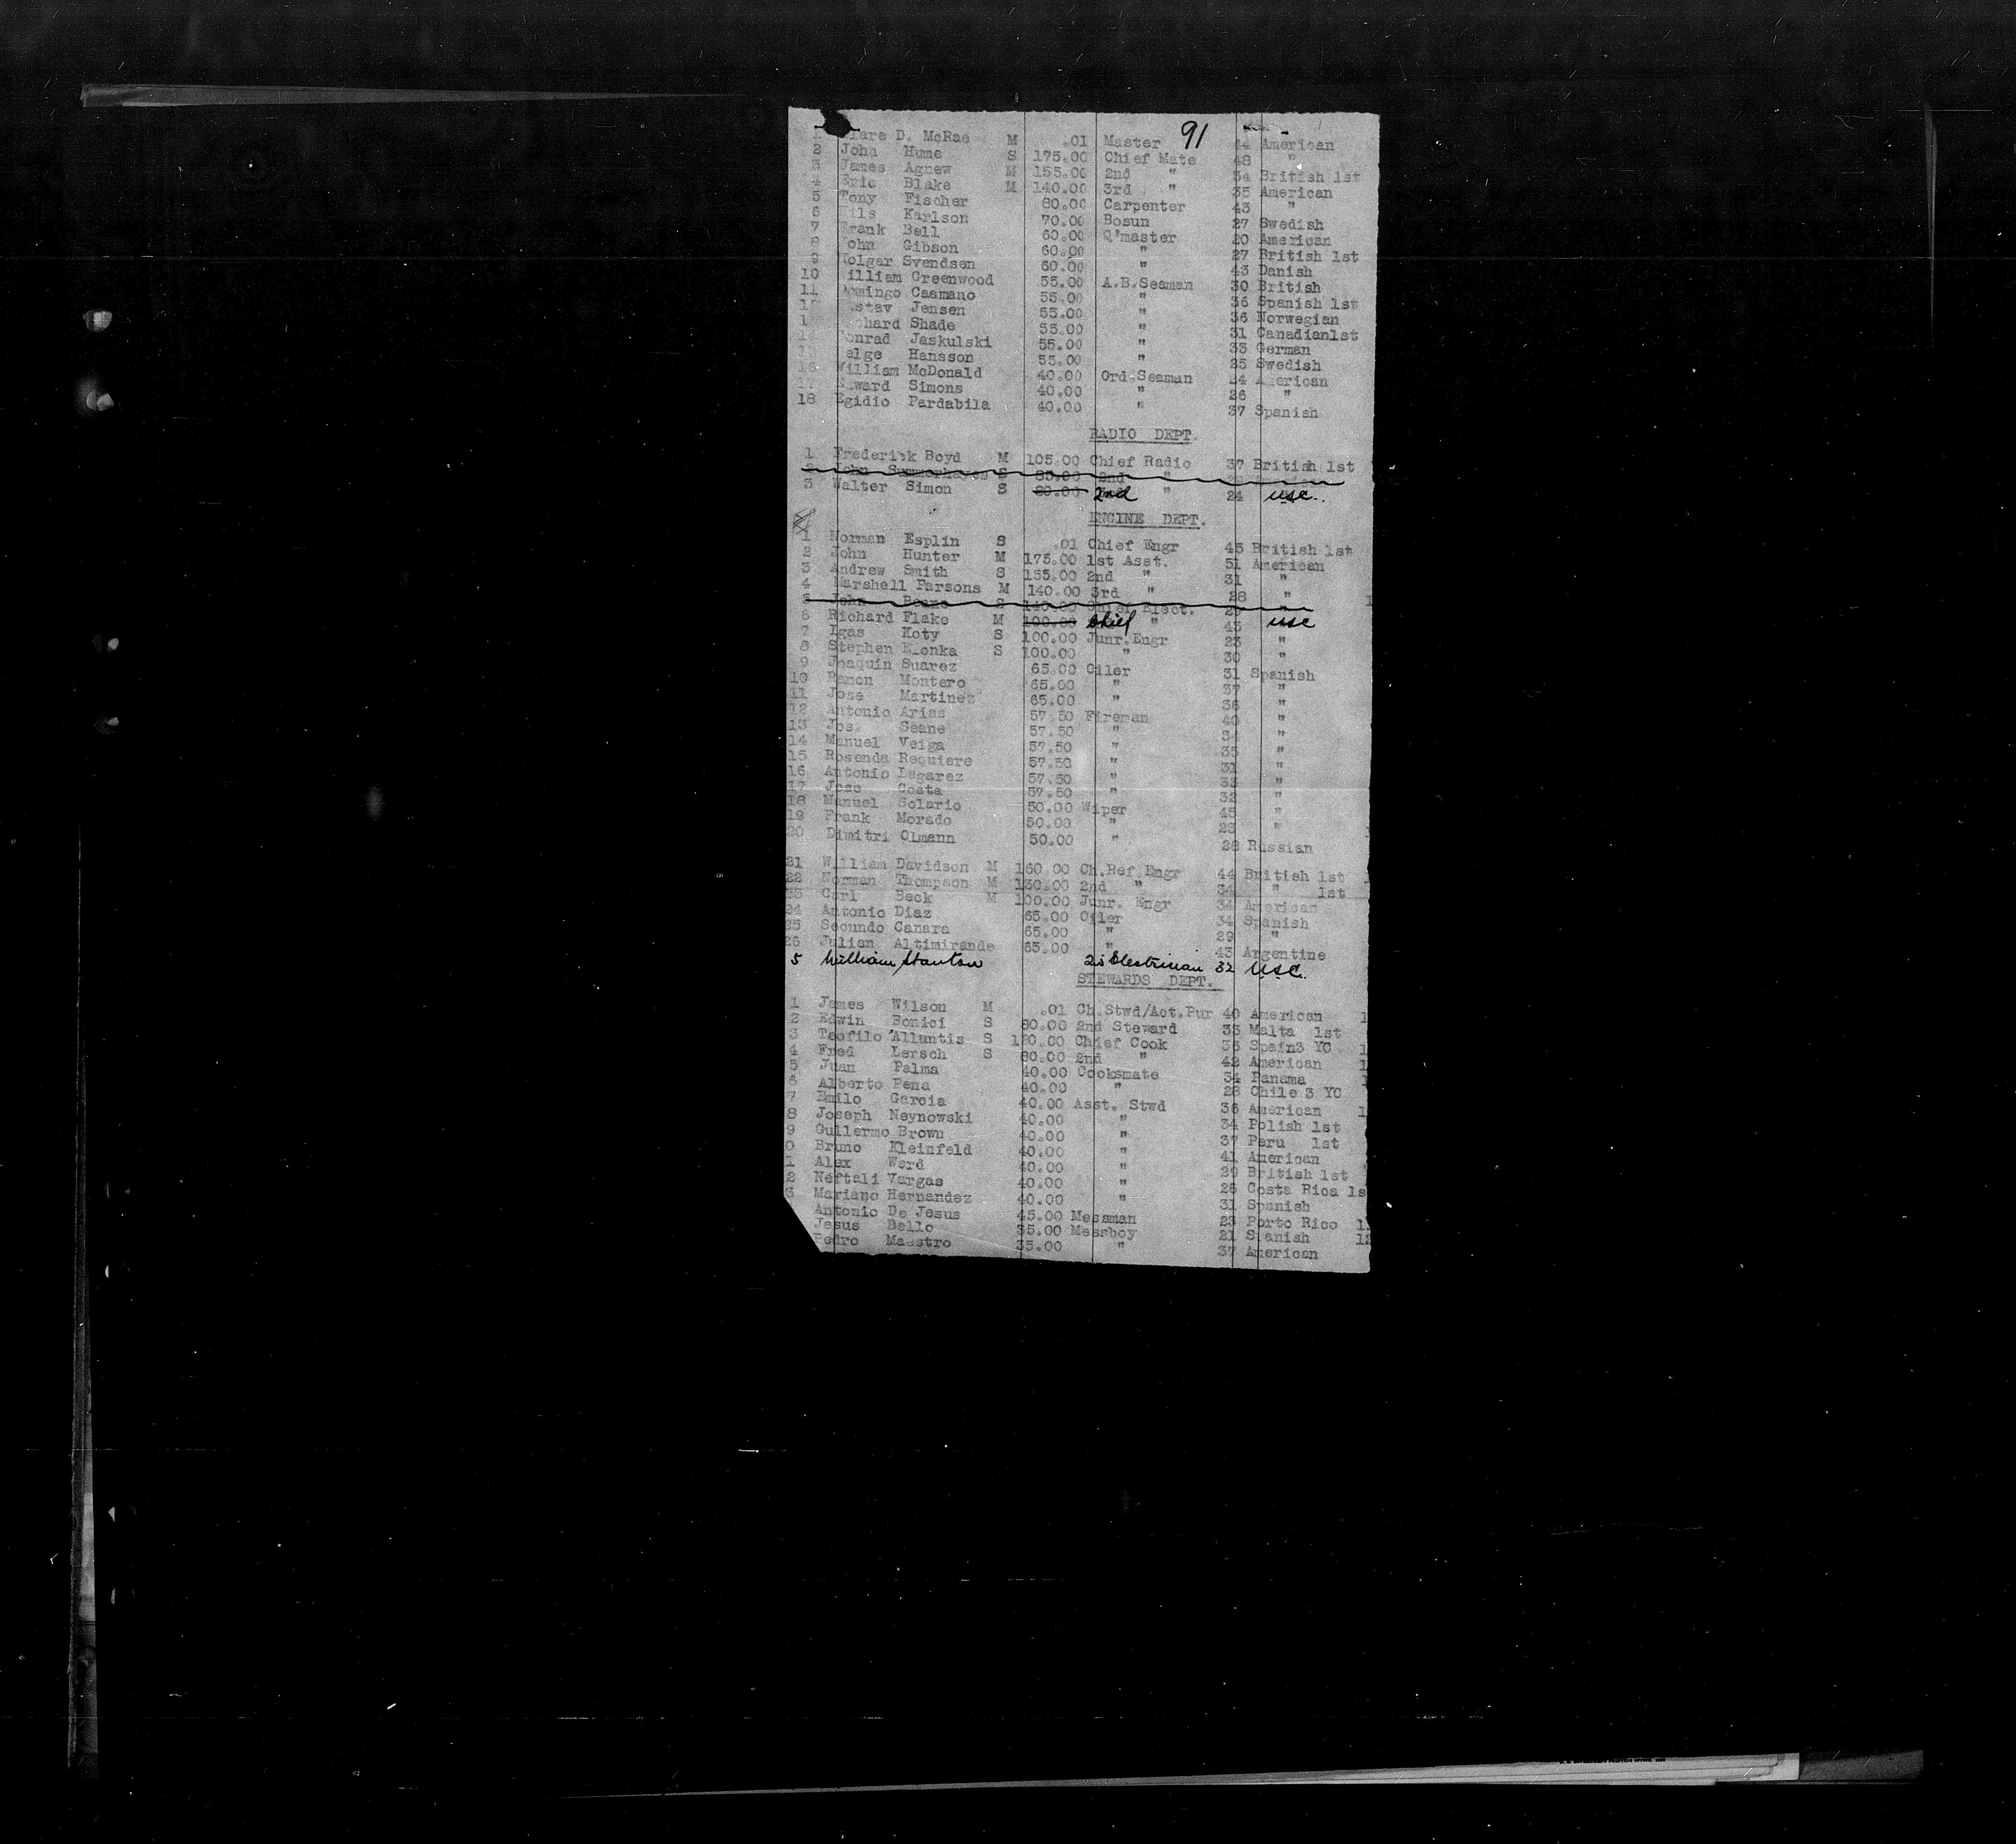 91
1 lare D. McRae M .01 Master 44 American
2 John Hume S 175.00 Chief Mate 48 "
3 James Agnew M 155.00 2nd " 34 British 1st
4 Eric Blake M 140.00 3rd " 35 American
5 Tony Fischer 80.00 Carpenter 43 "
6 Nils Karlson 70.00 Bosun 27 Swedish
7 Frank Bell 60.00 Q'master 20 American
8 John Gibson 60.00 " 27 British 1st
9 Holger Svendsen 60.00 " 43 Danish
10 William Greenwood 55.00 A.B.Seaman 30 British
11 Domingo Caamano 55.00 " 36 Spanish 1st
1 stav Jensen 55.00 " 36 Norwegian
1 chard Shade 55.00 " 31 Canadian1st
14 Conrad Jaskulski 55.00 " 33 German
1 elge Hansson 55.00 " 25 Swedish
16 William McDonald 40.00 Ord.Seaman 24 American
17 Edward Simons 40.00 " 26 "
18 Egidio Pardabila 40.00 " 37 Spanish
RADIO DEPT.
1 Frederick Boyd M 105.00 Chief Radio 37 British 1st
2 John Summerhayes S 85.00 2nd "
3 Walter Simon S 80.00 2nd " 24 USC.
ENGINE DEPT.
1 Norman Esplin S .01 Chief Engr 45 British 1st
2 John Hunter M 175.00 1st Asst. 51 American
3 Andrew Smith S 155.00 2nd " 31 "
4 Marshell Parsons M 140.00 3rd " 28 "
5 John S 140.00 Chief Elect. "
6 Richard Flake M 100.00 Chief " 43 USC
7 Igas Koty S 100.00 Junr.Engr 23 "
8 Stephen Elonka S 100.00 " 30 "
9 Joaquin Suarez 65.00 Oiler 31 Spanish
10 Ramon Montero 65.00 " 37 "
11 Jose Martinez 65.00 " 36 "
12 Antonio Arias 57.50 Fireman 40 "
13 Jos Seane 57.50 " 34 "
14 Manuel Veiga 57.50 " 35 "
15 Rosenda Requiere 57.50 " 31 "
16 Antonio Lagarez 57.50 " 33 "
17 Jose Costa 57.50 " 32 "
18 Manuel Solario 50.00 Wiper 45 "
19 Frank Morado 50.00 " 23 "
20 Dimitri Olmann 50.00 " 28 Russian
21 William Davidson M 160.00 Ch.Ref.Engr 44 British 1st
22 Norman Thompson M 130.00 2nd " 34 " 1st
23 Carl Beck M 100.00 Junr. Engr 34 American
24 Antonio Diaz 65.00 Oiler 34 Spanish
25 Secundo Canara 65.00 " 29 "
26 Julian Altimirande 65.00 " 43 Argentine
5 William Stanton 2nd Electrician 32 USC.
STEWARDS DEPT.
1 James Wilson M .01 Ch.Stwd/Act.Pur 40 American 1
2 Edwin Bonici S 80.00 2nd Steward 33 Malta 1st
3 Teofilo Alluntis S 120.00 Chief Cook 36 Spain3 YC 1
4 Fred Lersch S 80.00 2nd " 42 American 1
5 Juan Palma 40.00 Cooksmate 34 Panama 1
6 Alberto Pena 40.00 " 28 Chile 3 YC
7 Emilo Garcia 40.00 Asst. Stwd 36 American 1
8 Joseph Neynowski 40.00 " 34 Polish 1st
9 Gullermo Brown 40.00 " 37 Peru 1st
0 Bruno Kleinfeld 40.00 " 41 American
1 Alex Ward 40.00 " 29 British 1st
2 Neftali Vargas 40.00 " 26 Costa Rica 1s
3 Mariano Hernandez 40.00 " 31 Spanish
Antonio De Jesus 45.00 Messman 23 Porto Rico 1
Jesus Bello 35.00 Messboy 21 Spanish 12
Pedro Maestro 35.00 " 37 American